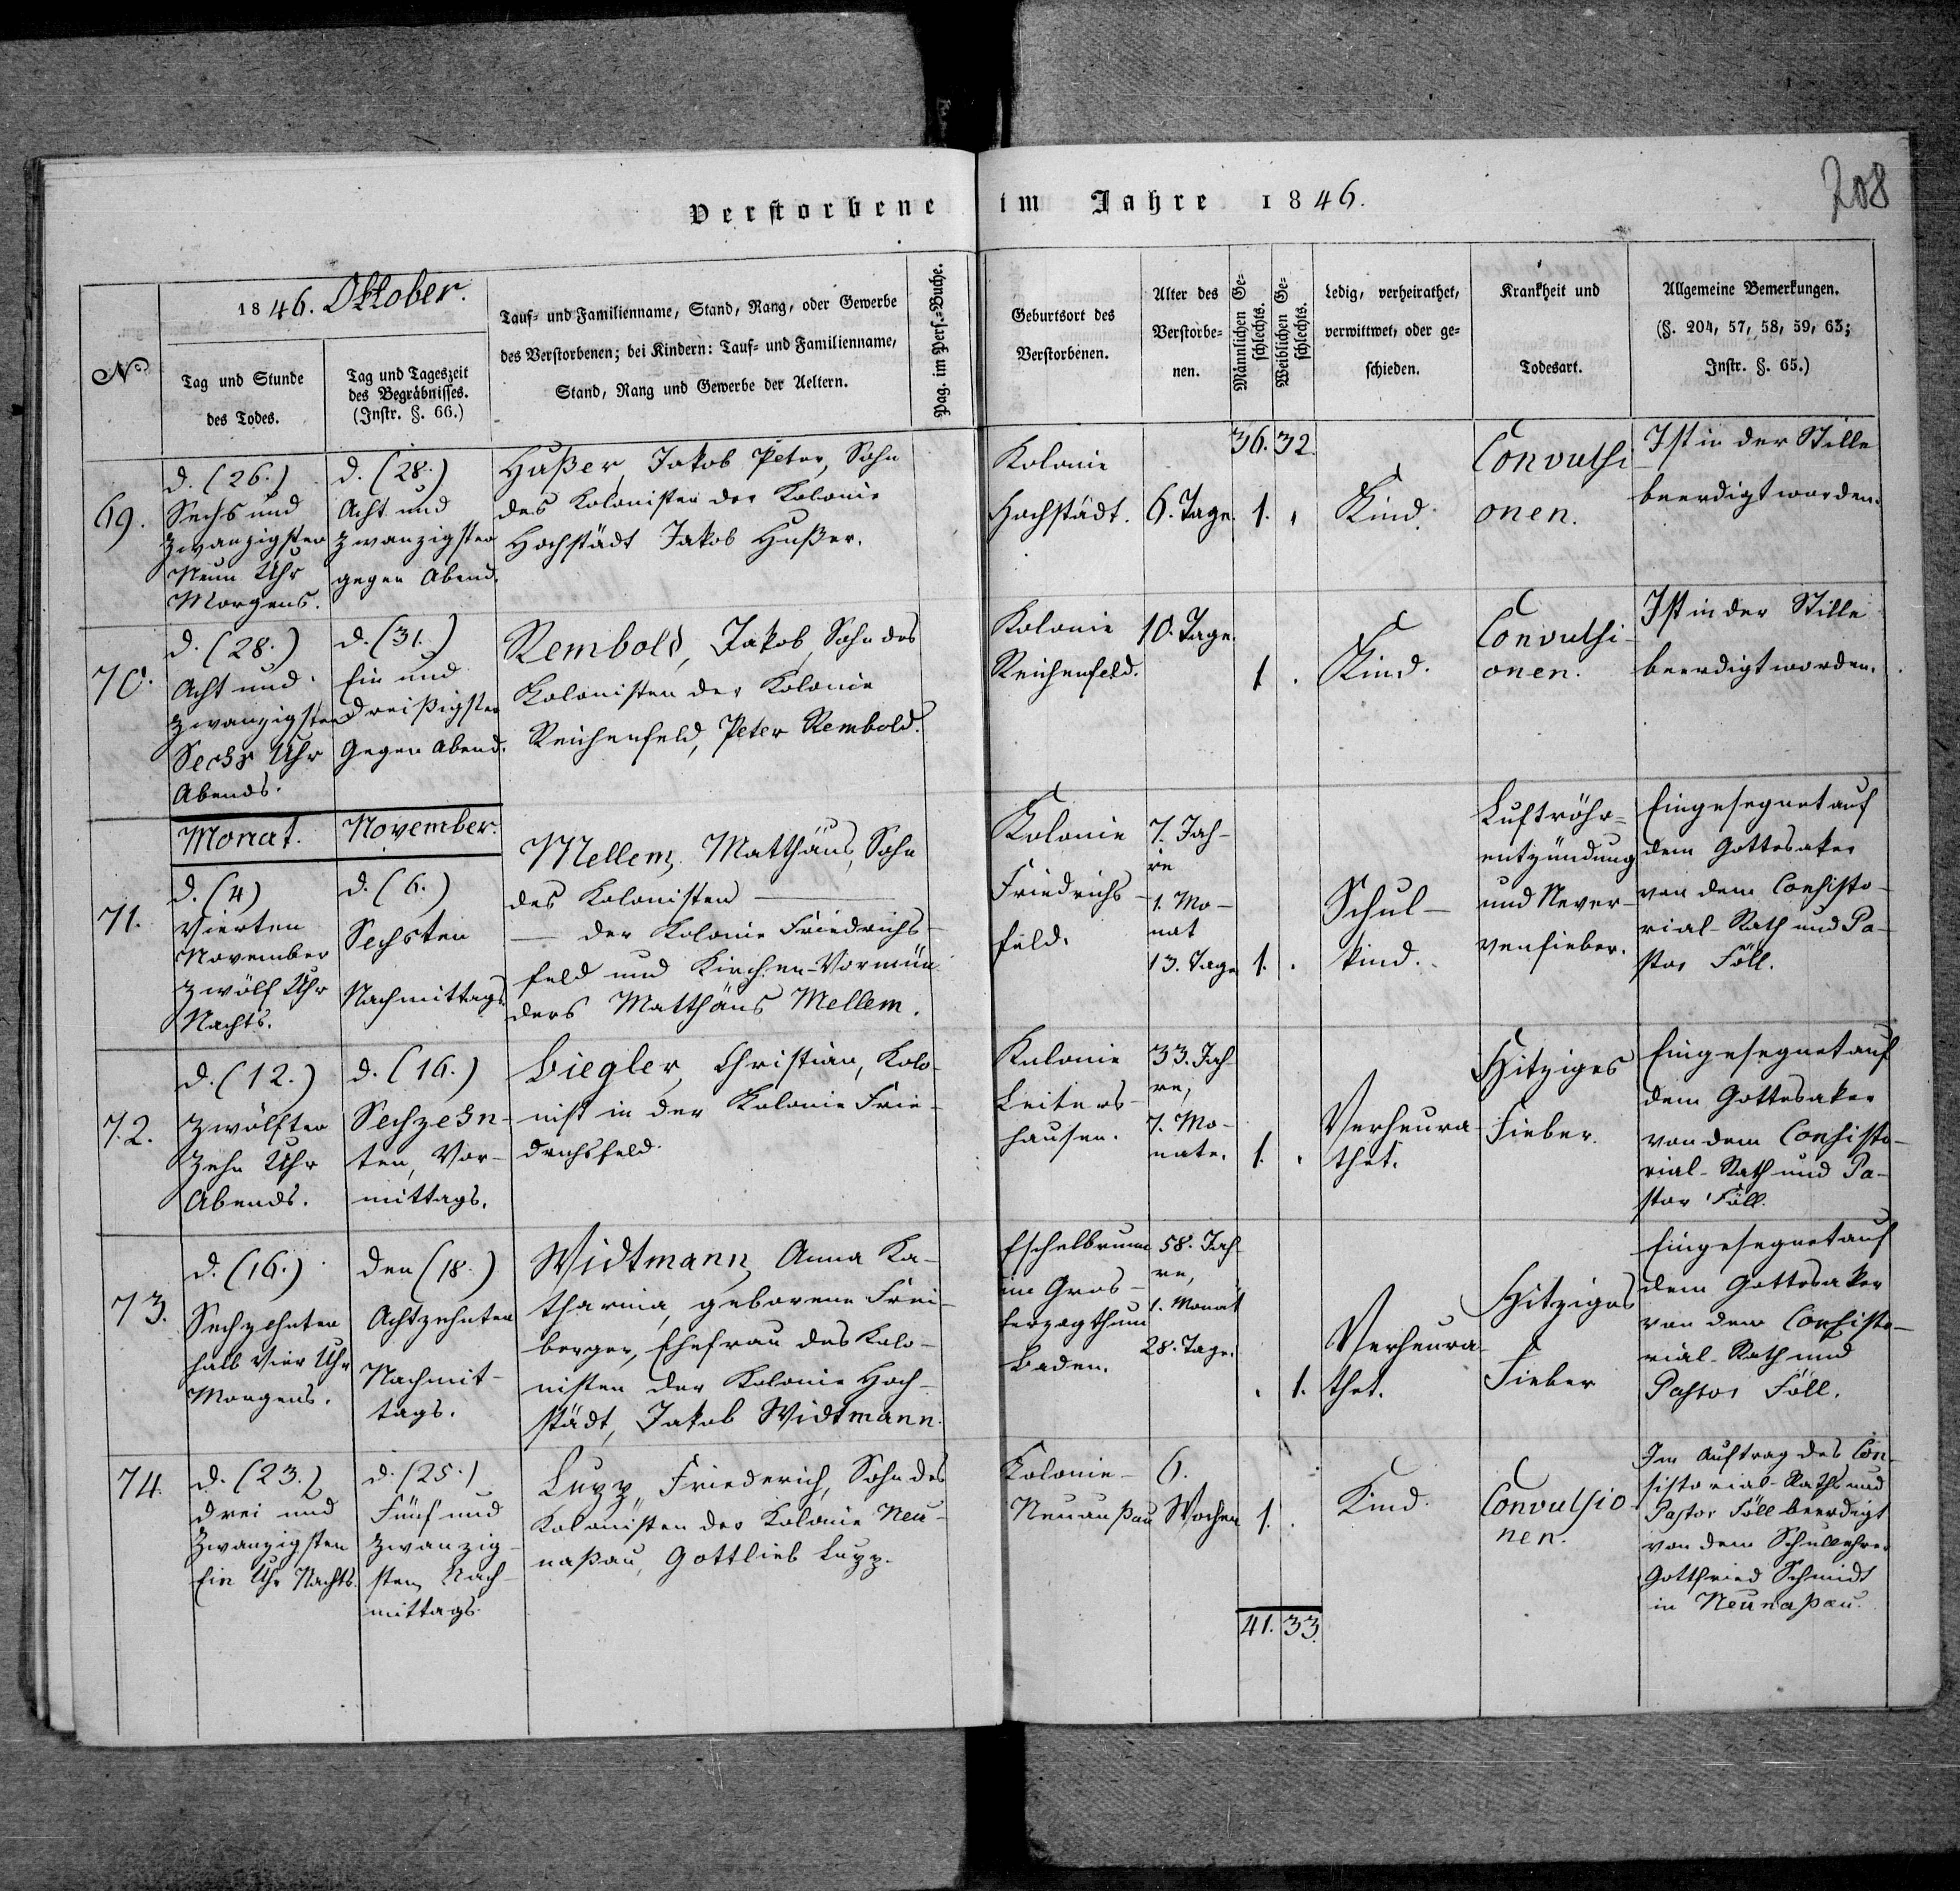 Verstorbene im Jahre 1846.
208
No
1846. Oktober.
Tag und Stunde
des Todes.
Tag und Tageszeit
des Begräbnisses.
(Instr. §. 66.)
Tauf- und Familienname, Stand, Rang, oder Gewerbe
des Verstorbenen; bei Kindern: Tauf- und Familienname,
Stand, Rang und Gewerbe der Aeltern.
Pag. im Pers.-Buche.
Geburtsort des
Verstorbenen.
Alter des
Verstorbe-
nen.
Männlichen Ge-
schlechts.
Weiblichen Ge-
schlechts.
Ledig, verheirathet,
verwittwet, oder ge-
schieden.
Krankheit und
Todesart.
Allgemeine Bemerkungen.
(§. 204, 57, 58, 59, 63;
Instr. §. 65.)
36. 32.
69.
d. (26.)
Sechs und
zwanzigsten
Neun Uhr
Morgens.
d. (28.)
Acht und
zwanzigsten
gegen Abend.
Hußer, Jakob Peter, Sohn
des Kolonisten der Kolonie
Hochstädt Jakob Hußer.
Kolonie
Hochstädt.
6. Tage.
1.
Kind.
Convulsi
onen.
Ist in der Stille
beerdigt worden.
70.
d. (28.)
Acht und
zwanzigsten
Sechs Uhr
Abends.
d. (31.)
Ein und
dreißigsten
Gegen Abend.
Rembold, Jakob, Sohn des
Kolonisten der Kolonie
Reichenfeld, Peter Rembold.
Kolonie
Reichenfeld.
10. Tage.
1.
Kind.
Convulsi-
onen.
Ist in der Stille
beerdigt worden.
Monat. November.
71.
d. (4)
Vierten
November
zwölf Uhr
Nachts.
d. (6.)
Sechsten
Nachmittags.
Mellem, Matthäus, Sohn
des Kolonisten
der Kolonie Friedrichs-
feld und Kirchen-Vormün
ders Matthäus Mellem.
Kolonie
Friedrichs-
feld.
7. Jah-
re
1. Mo-
nat
13. Tage
1.
Schul-
kind.
Luftröhr-
entzündung
und Never-
venfieber.
Eingesegnet auf
dem Gottesaker
von dem Consisto-
rial-Rath und Pa-
stor Föll.
72.
d. (12.)
zwölften
Zehn Uhr
Abends.
d. (16.)
Sechzehn-
ten, Vor-
mittags.
Ziegler, Christian, Kolo-
nist in der Kolonie Frie-
drichsfeld.
Kolonie
Leiters-
hausen.
33. Jah-
re,
7. Mo-
nate.
1.
Verheura-
thet.
Hitziges
Fieber.
Eingesegnet auf
dem Gottesaker
von dem Consisto-
rial-Rath und Pa-
stor Föll.
73.
d. (16.)
Sechzehnten
halb Vier Uhr
Morgens.
den (18.)
Achtzehnten
Nachmit-
tags.
Widtmann, Anna Ka-
tharina, geborene Frei-
berger, Ehefrau des Kolo-
nisten der Kolonie Hoch-
städt, Jakob Widtmann.
Eschelbrunn
im Gros-
herzogthum
Baden.
58. Jah-
re,
1. Monat
28. Tage.
1.
Verheura-
thet.
Hitziges
Fieber
Eingesegnet auf
dem Gottesaker
von dem Consisto-
rial-Rath und
Pastor Föll.
74.
d. (23.)
Drei und
Zwanzigsten
Ein Uhr Nachts.
d. (25.)
Fünf und
zwanzig-
sten Nach-
mittags.
Lupp, Friederich, Sohn des
Kolonisten der Kolonie Neu-
naßau, Gottlieb Lupp.
Kolonie
Neunaßau
6.
Wochen
1.
Kind.
Convulsio-
nen.
Im Auftrag des Con-
sistorial-Raths und
Pastor Föll beerdigt
von dem Schullehrer
Gottfried Schmidt
in Neunaßau.
41. 33.